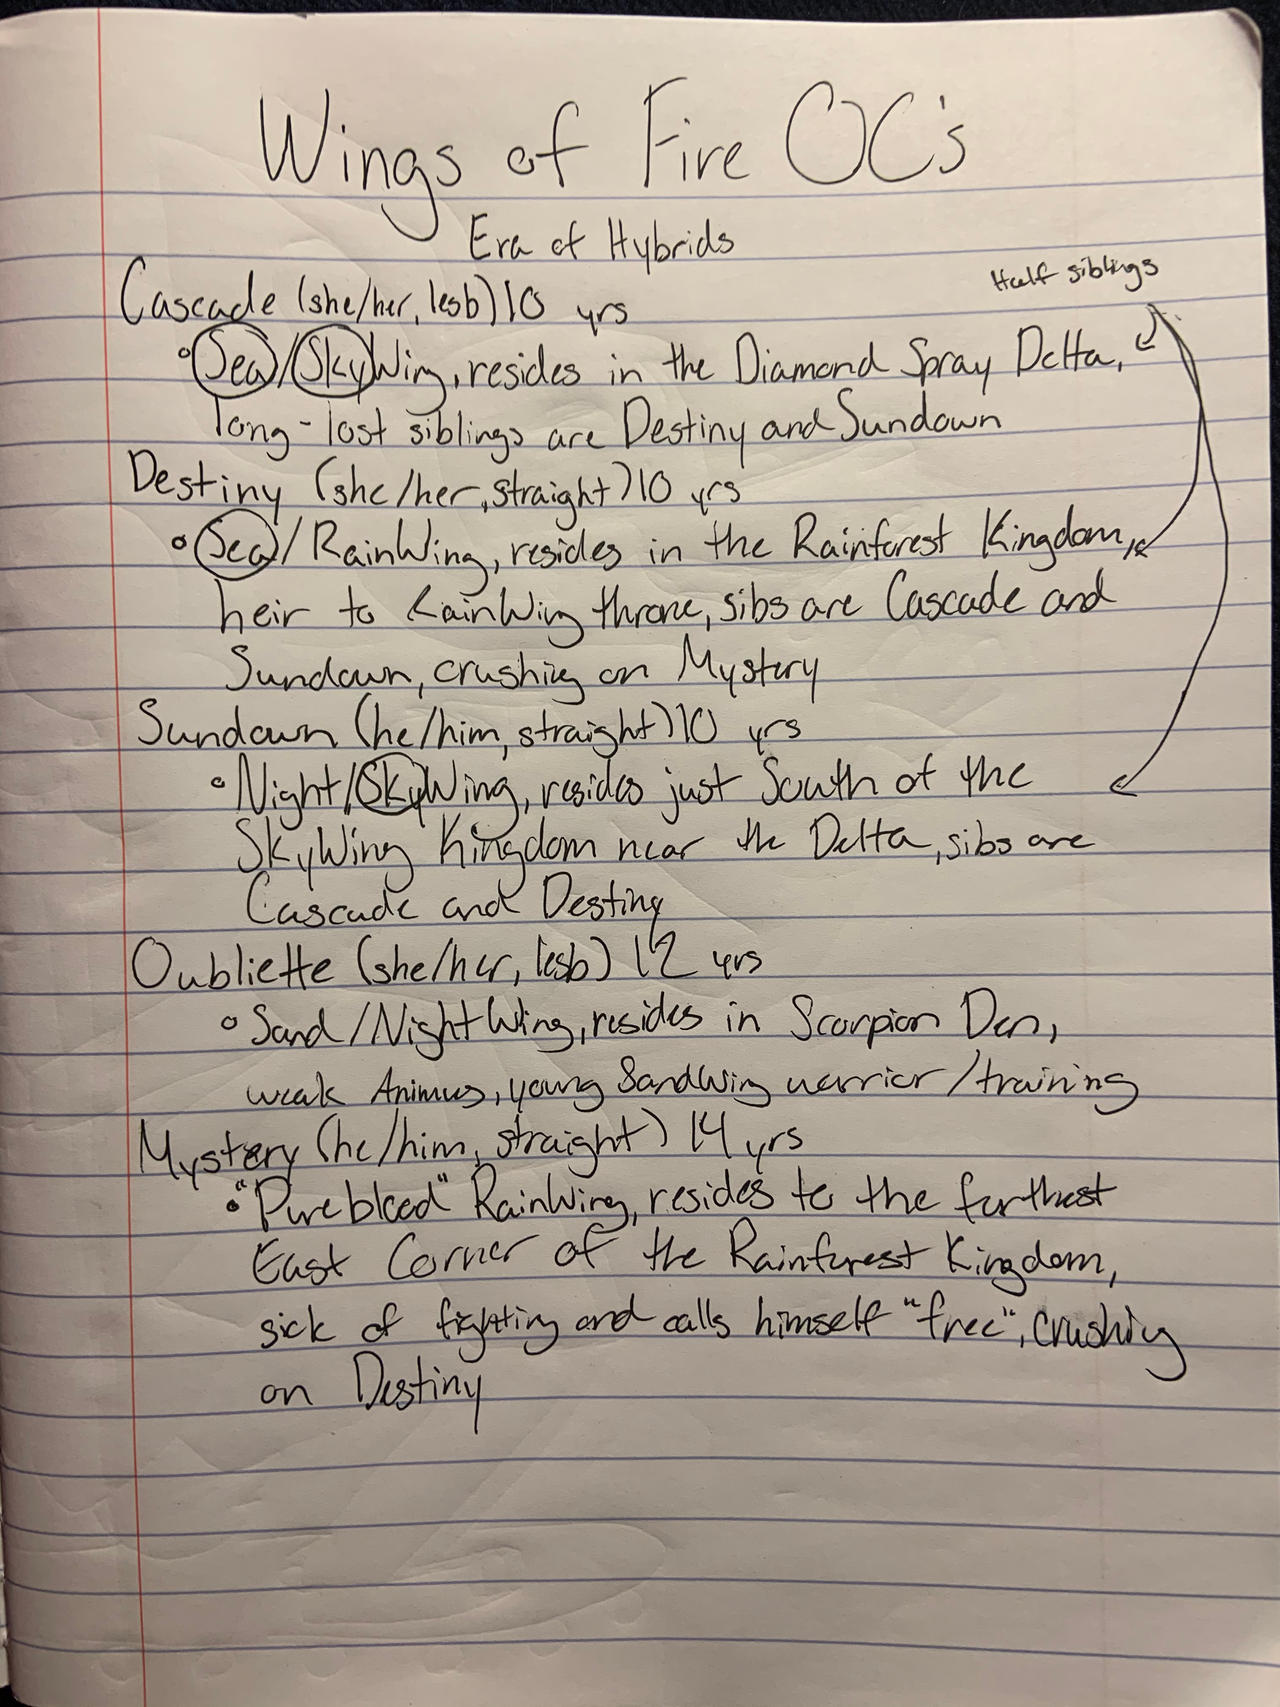 Wings of Fire OC's
Era of Hybrids
Half siblings
Cascade (she/her, lesb) 10 yrs
• Sea/SkyWing, resides in the Diamond Spray Delta,
long-lost siblings are Destiny and Sundown
Destiny (she/her, straight) 10 yrs
• Sea/RainWing, resides in the Rainforest Kingdom,
heir to RainWing throne, sibs are Cascade and
Sundown, crushing on Mystery
Sundown (he/him, straight) 10 yrs
• Night/SkyWing, resides just South of the
SkyWing Kingdom near the Delta, sibs are
Cascade and Destiny
Oubliette (she/her, lesb) 12 yrs
• Sand/NightWing, resides in Scorpion Den,
weak Animus, young SandWing warrior/training
Mystery (he/him, straight) 14 yrs
• "Pureblood" RainWing, resides to the furthest
East Corner of the Rainforest Kingdom,
sick of fighting and calls himself "free", crushing
on Destiny